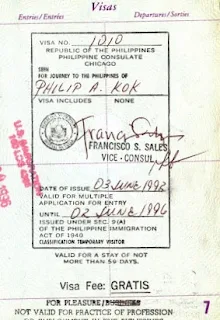 Visas
Entries/Entrées Departures/Sorties
VISA NO. 1010
REPUBLIC OF THE PHILIPPINES
PHILIPPINE CONSULATE
CHICAGO
SEEN
FOR JOURNEY TO THE PHILIPPINES OF
PHILIP A. KOK
VISA INCLUDES NONE
FRANCISCO S. SALES
VICE - CONSUL
DATE OF ISSUE 03 JUNE 1992
VALID FOR MULTIPLE
APPLICATION FOR ENTRY
UNTIL 02 JUNE 1996
ISSUED UNDER SEC. 9(A)
OF THE PHILIPPINE IMMIGRATION
ACT OF 1940
CLASSIFICATION TEMPORARY VISITOR
VALID FOR A STAY OF NOT
MORE THAN 59 DAYS.
Visa Fee: GRATIS
FOR PLEASURE/
NOT VALID FOR PRACTICE OF PROFESSION
7